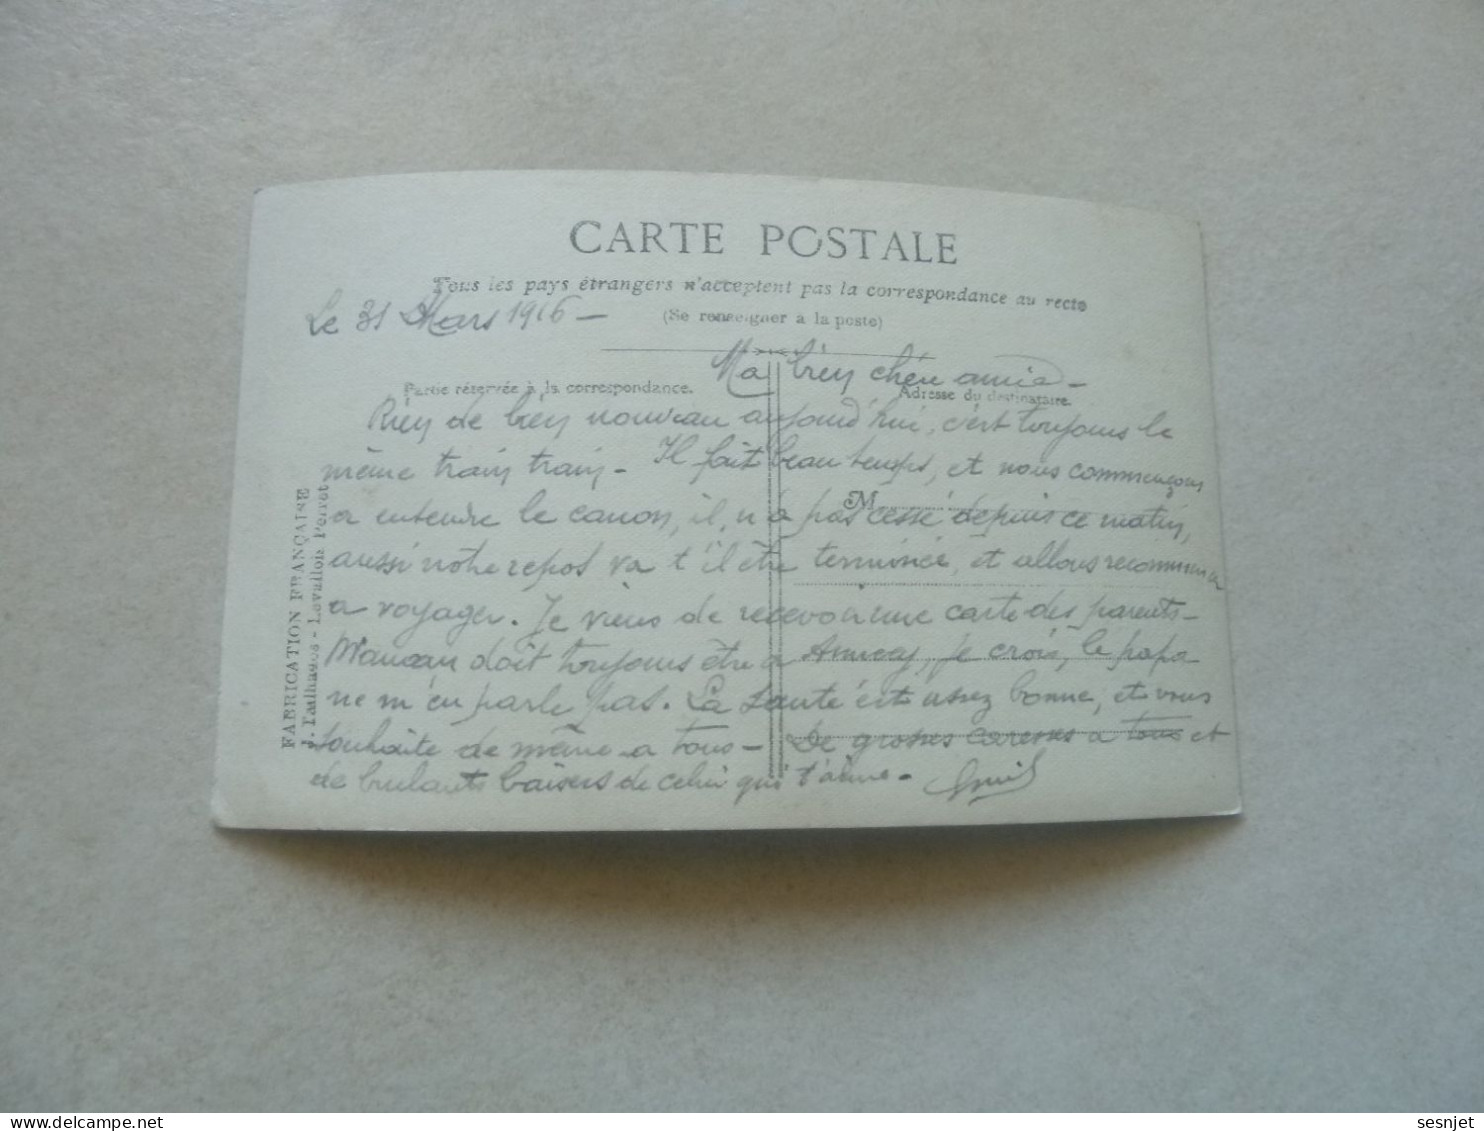 CARTE POSTALE
Tous les pays étrangers n'acceptent pas la correspondance au recto
(Se renseigner à la poste)
Le 31 Mars 1916 -
Partie réservée à la correspondance.
Adresse du destinataire.
Ma bien chère amie -
Rien de bien nouveau aujourd'hui, c'est toujours le
même train train - Il fait beau temps, et nous commençons
M
a entendre le canon, il n'a pas cessé depuis ce matin,
aussi notre repos va t'il être terminée, et allons recommencer
a voyager. Je viens de recevoir une carte des parents -
doit toujours être a Annecy, je crois, le papa
ne m'en parle pas. La santé est assez bonne, et vous
souhaite de même a tous - De grosses caresses a tous et
de brulants baisers de celui qui t'aime -
FABRICATION FRANÇAISE
J. Tailhades - Levallois Perret
www.delcampe.net
sesnjet